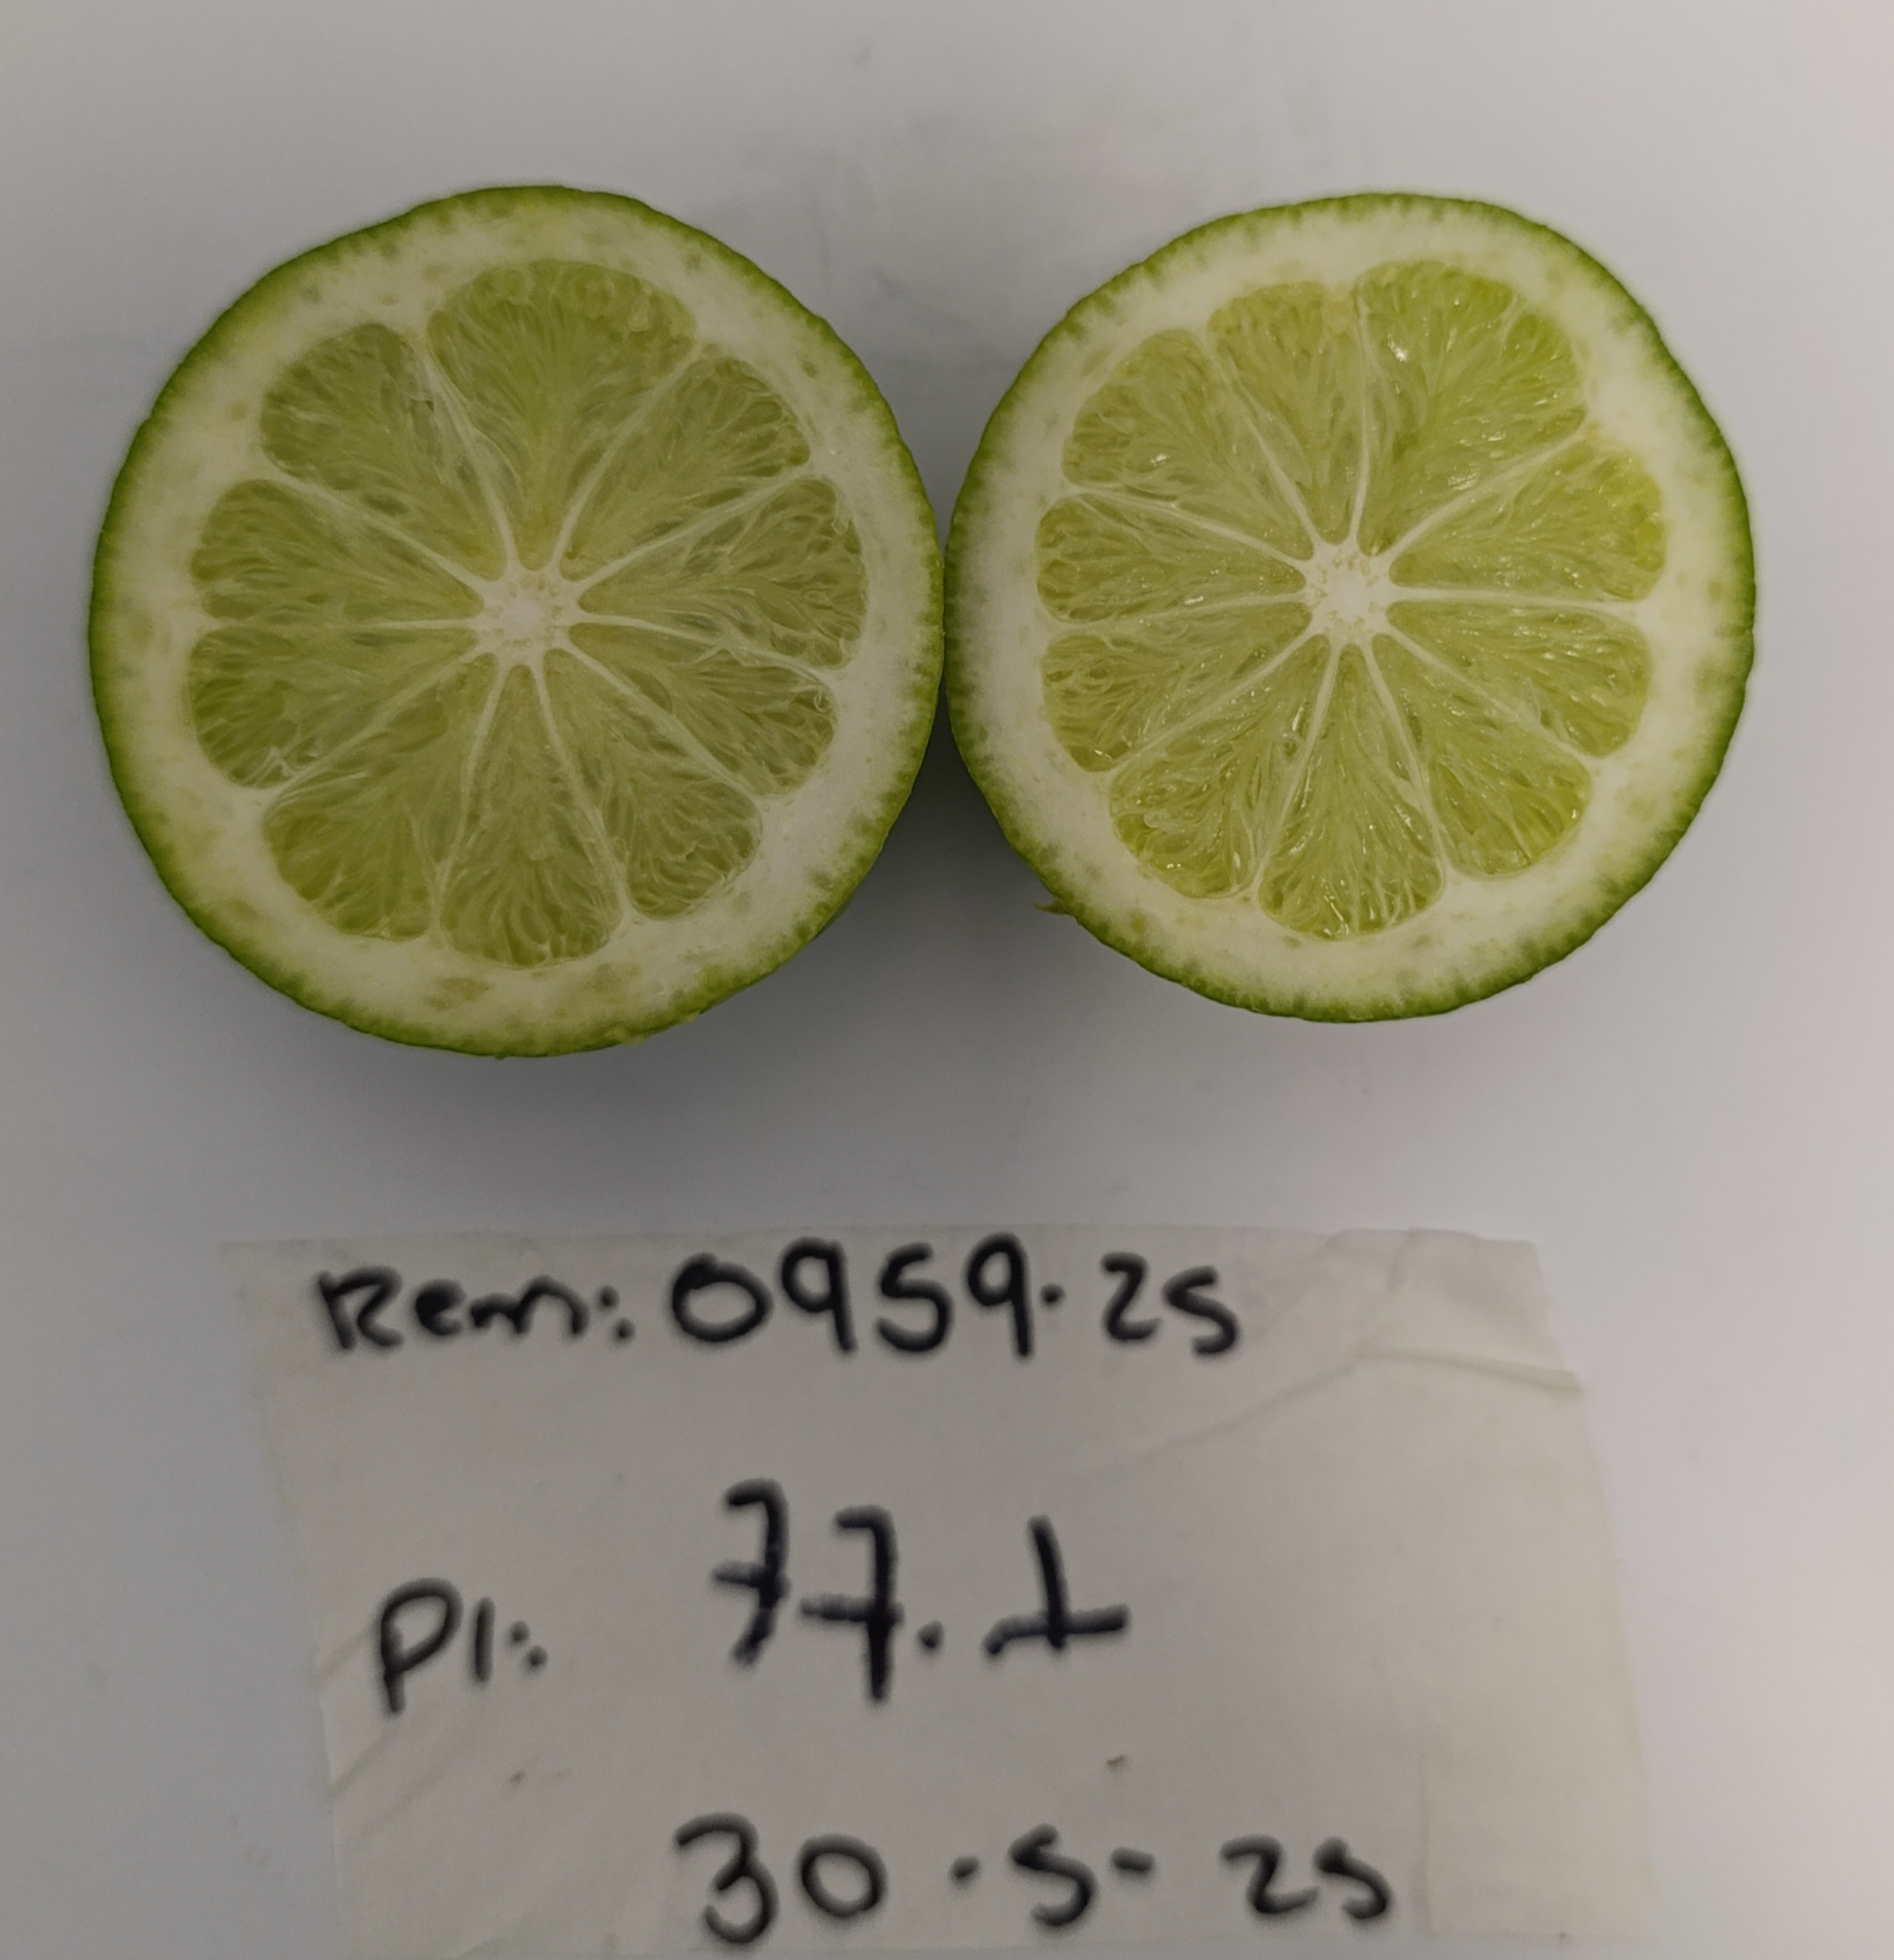 Rem: 0959.25
P1: 77.1
30.5-25